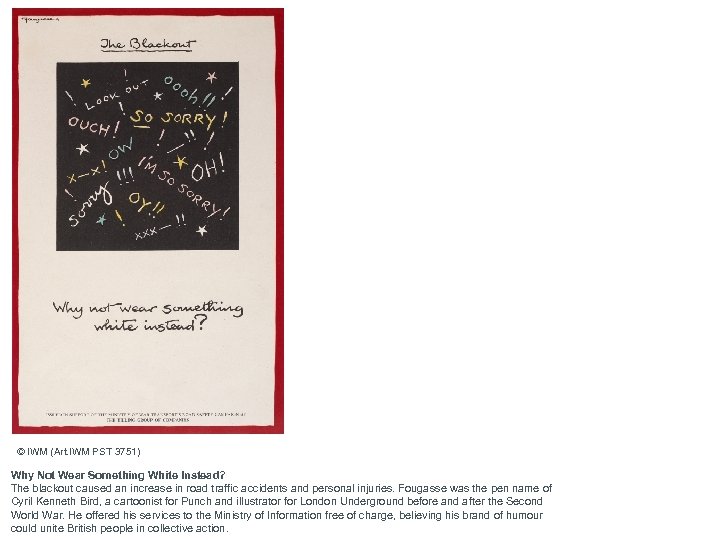 Fougasse
The Blackout
! LOOK OUT !
OOOh!! !
OUCH! SO SORRY!
OW ! —!!
x—x! !!! I'M SO SORRY! OH!
! Sorry OY!!
! xxx—!!
Why not wear something
white instead?
ISSUED IN SUPPORT OF THE MINISTRY OF WAR TRANSPORT'S ROAD SAFETY CAMPAIGN BY
THE TILLING GROUP OF COMPANIES
© IWM (Art.IWM PST 3751)
Why Not Wear Something White Instead?
The blackout caused an increase in road traffic accidents and personal injuries. Fougasse was the pen name of
Cyril Kenneth Bird, a cartoonist for Punch and illustrator for London Underground before and after the Second
World War. He offered his services to the Ministry of Information free of charge, believing his brand of humour
could unite British people in collective action.